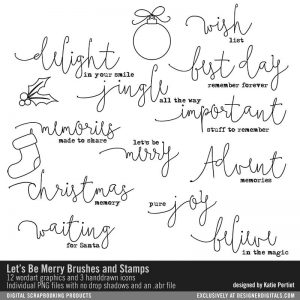 wish
list
delight
in your smile
best day
remember forever
jingle
all the way
important
stuff to remember
memories
made to share
let's be
merry
Advent
memories
Christmas
memory
pure
joy
waiting
for Santa
believe
in the magic
Let's Be Merry Brushes and Stamps
12 wordart graphics and 3 handdrawn icons
Individual PNG files with no drop shadows and an .abr file
designed by Katie Pertiet
DIGITAL SCRAPBOOKING PRODUCTS
EXCLUSIVELY AT DESIGNERDIGITALS.COM